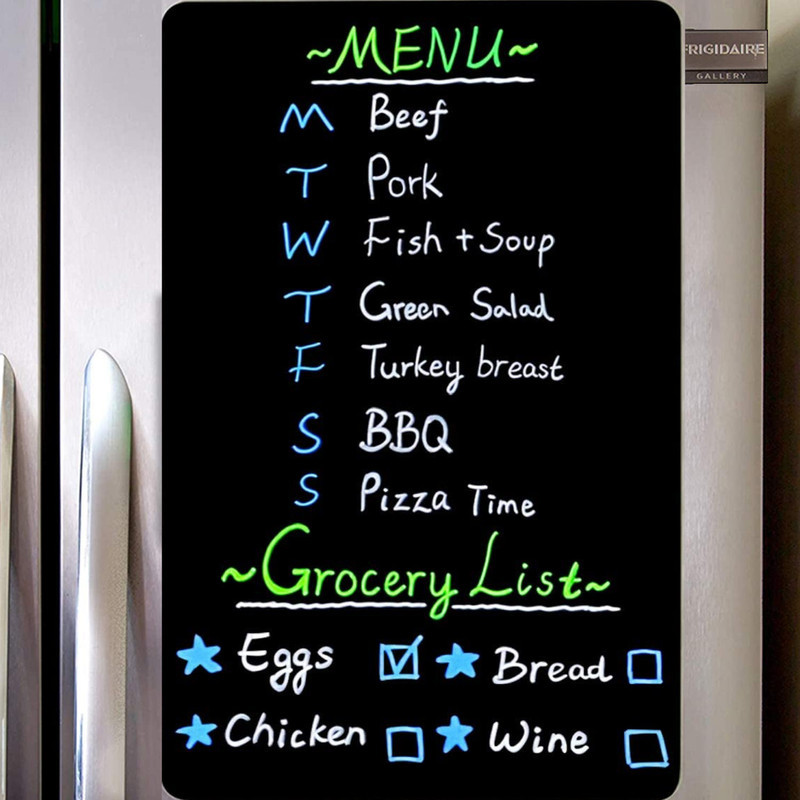 ~MENU~
FRIGIDAIRE
GALLERY
M Beef
T Pork
W Fish + Soup
T Green Salad
F Turkey breast
S BBQ
S Pizza Time
~Grocery List~
★ Eggs ☑ ★ Bread ☐
★ Chicken ☐ ★ Wine ☐